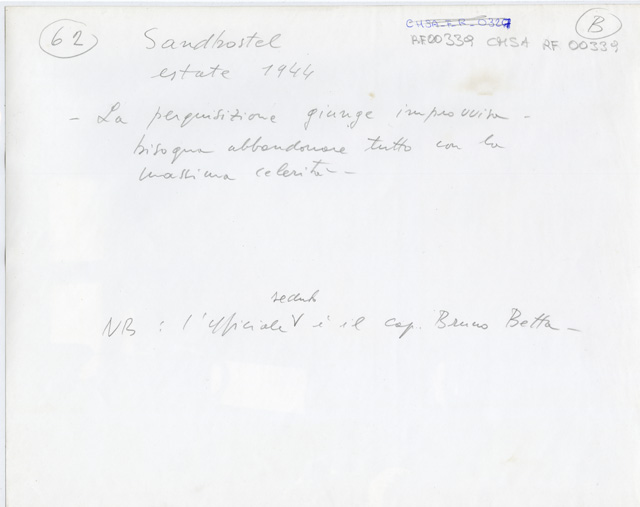 62
Sandbostel
estate 1944
CHSA RF 0327
RF00339 CMSA RF 00339
B
- La perquisizione giunge improvvisa -
bisogna abbandonare tutto con la
massima celerità -
seduto
NB : l'ufficiale è il cap. Bruno Betta -